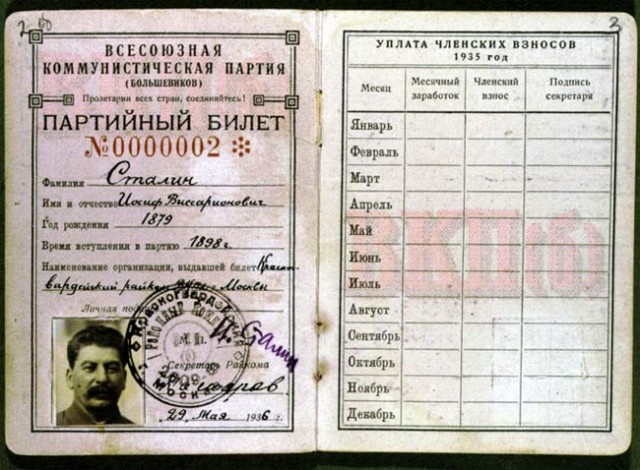 ВСЕСОЮЗНАЯ
КОММУНИСТИЧЕСКАЯ ПАРТИЯ
(БОЛЬШЕВИКОВ)
Пролетарии всех стран, соединяйтесь!
ПАРТИЙНЫЙ БИЛЕТ
№0000002
Фамилия Сталин
Имя и отчество Иосиф Виссарионович
Год рождения 1879
Время вступления в партию 1898 г.
Наименование организации, выдавшей билет Красно-
гвардейский райком г. Москвы
Личная
М. П.
И. Сталин
Секретарь Райкома
29 Мая 1936 г.
3
УПЛАТА ЧЛЕНСКИХ ВЗНОСОВ
1935 год
Месяц Месячный заработок Членский взнос Подпись секретаря
Январь
Февраль
Март
Апрель
Май
Июнь
Июль
Август
Сентябрь
Октябрь
Ноябрь
Декабрь
ВКП(б)